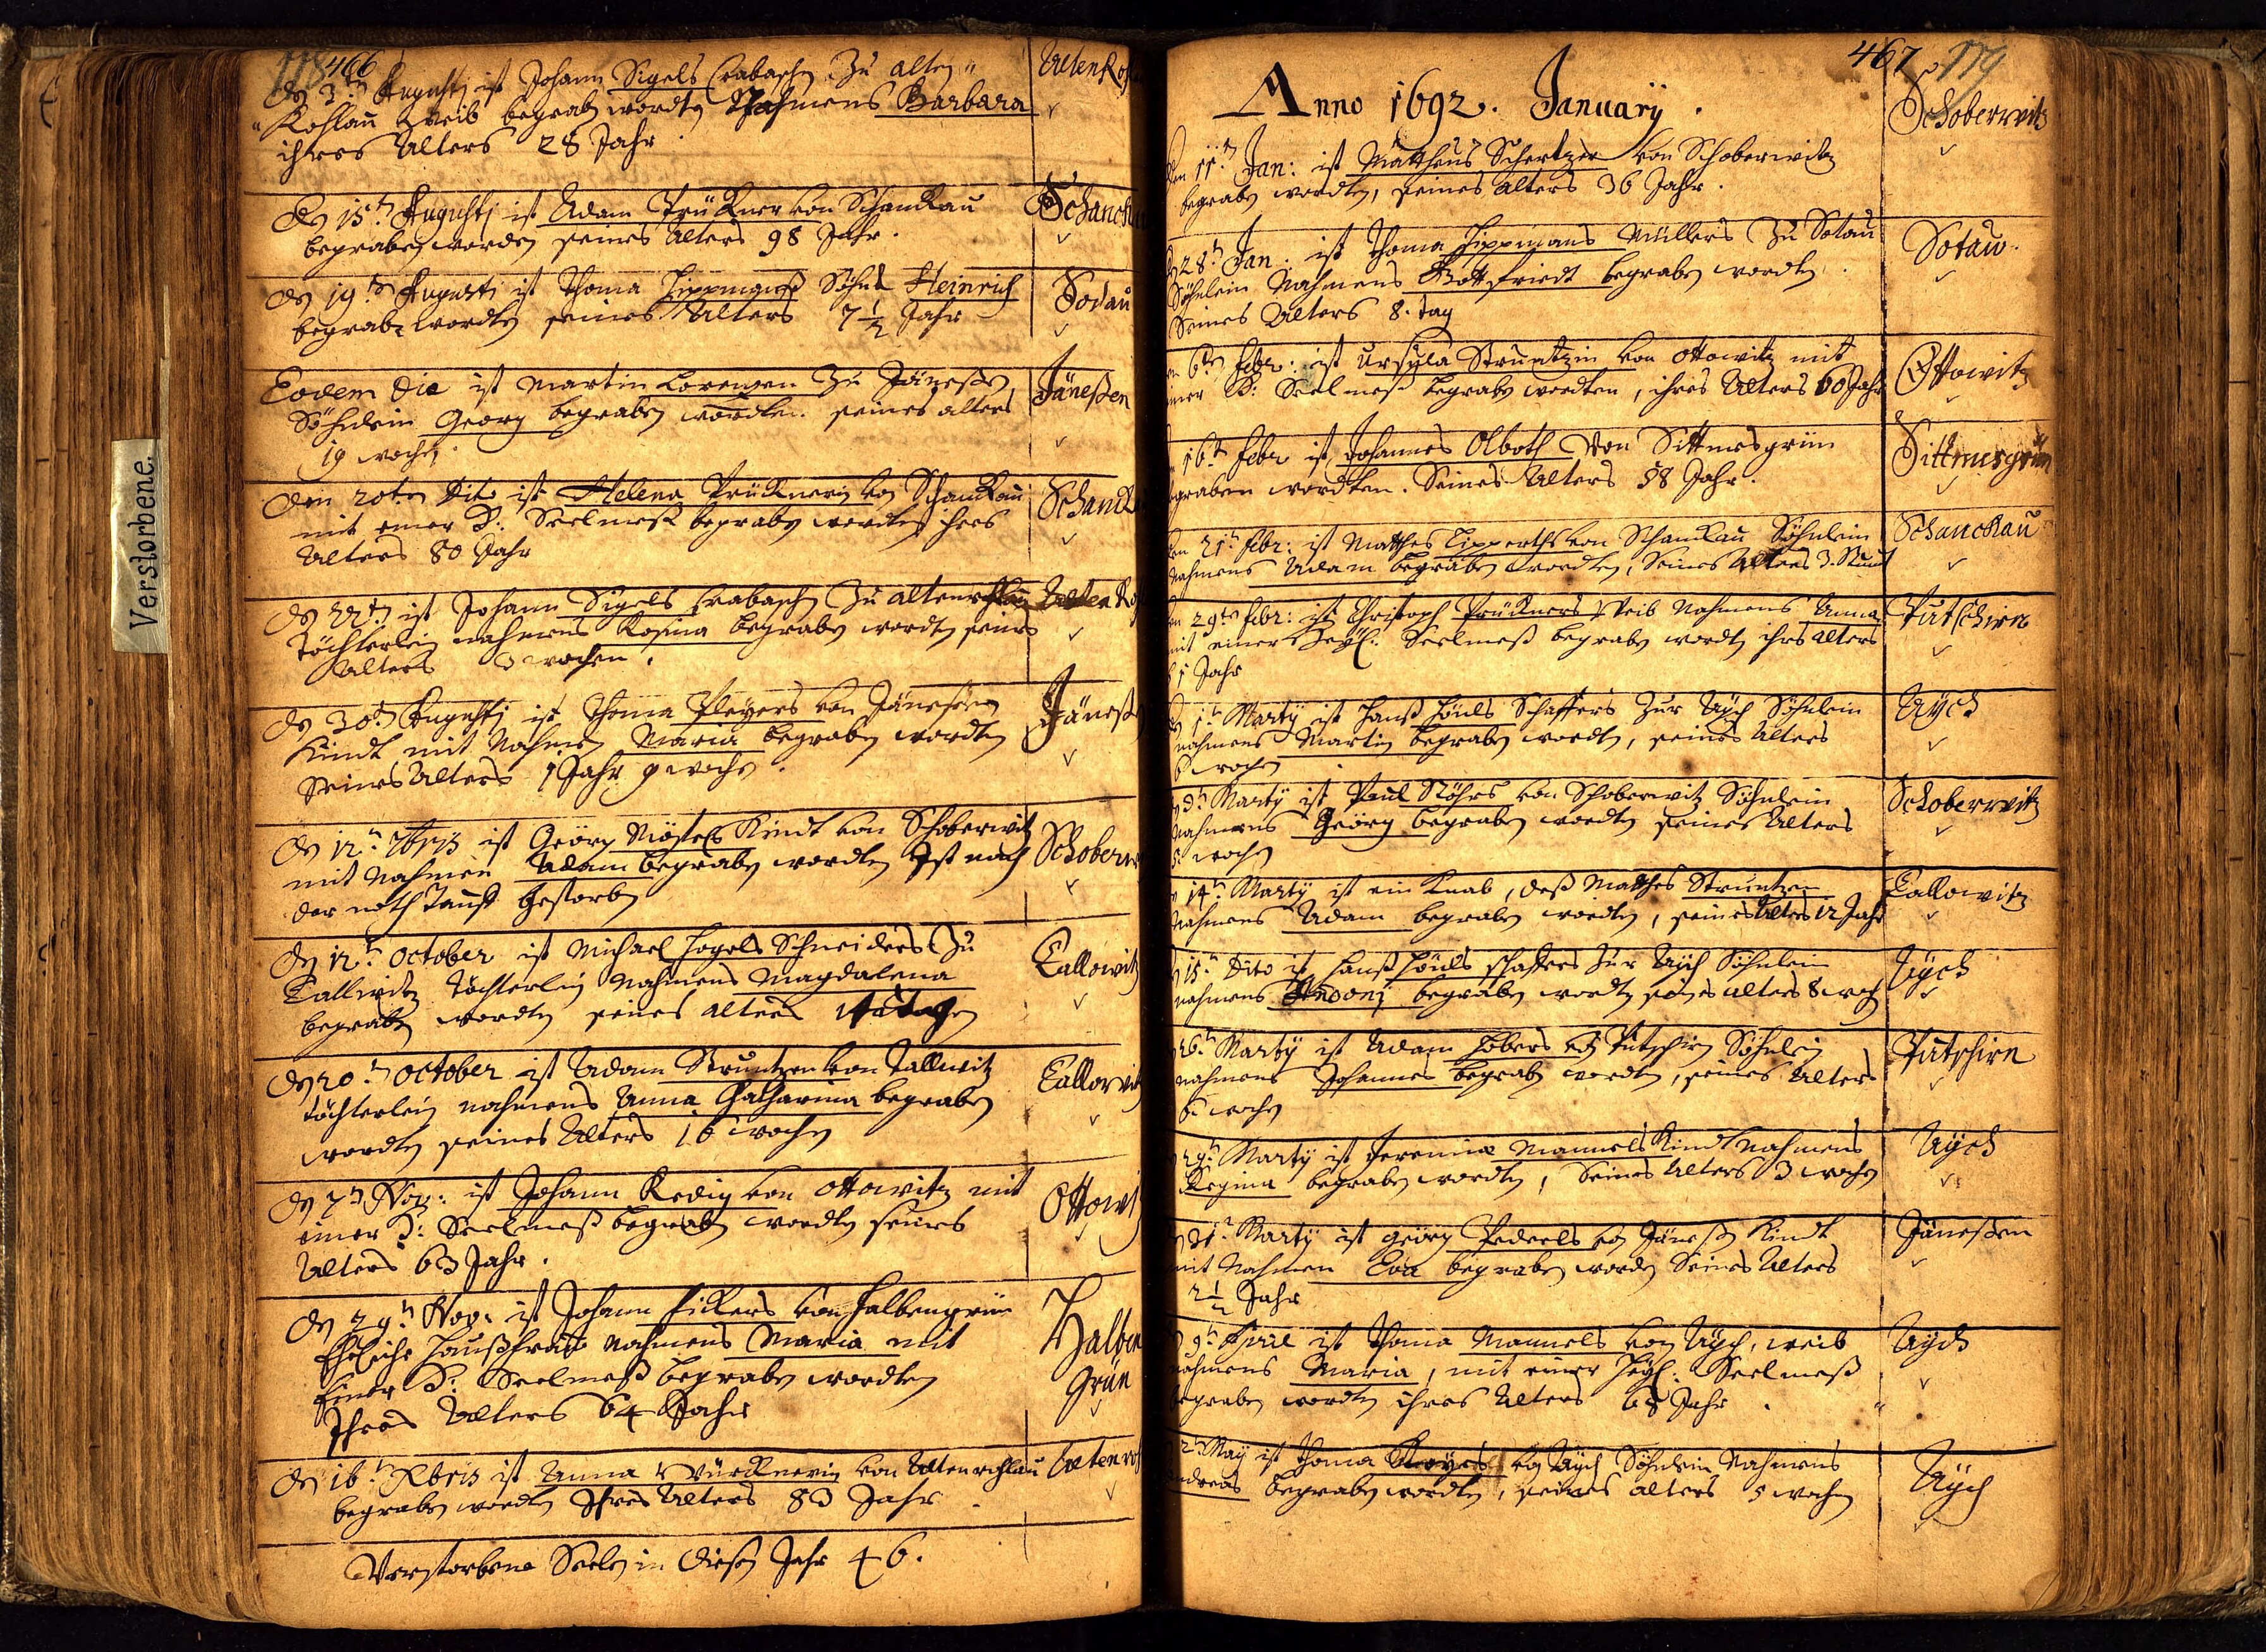 118 466
Verstorbene.
Den 3ten Augusti ist Johann Sigels zu alten
Rohlau weib begraben wordten Nahmens Barbara
ihres Alters 28 Jahr
Alten Ro
Den 15ten Augusti ist Adam Prückner von Schanckau
begraben worden seines Alters 98 Jahr.
Schancka
Den 19ten Augusti ist Thoma Lippmanß Söhnl Heinrich
begraben wordten seines Alters 7½ Jahr
Sodau
Eodem die ist Martin Lorenzen zu Jäneßen
Söhnlein Georg begraben wordten seines alters
19 wochen.
Jäneßen
Den 20ten Dito ist Helena Prücknerin von Schanckau
mit einer S: Seelmeß begraben wordten ihres
Alters 80 Jahr
Schancka
Den 22ten ist Johann Sigels zu altenrohlau
Töchterlein nahmens Rosina begraben wordten seines
Alters 3 wochen.
Alten Ro
Den 30ten Augusti ist Thoma Pleyers von Jäneßen
Kindt mit Nahmen Maria begraben wordten
Seines Alters 1 Jahr 9 wochen.
Jäneße
Den 12ten 7bris ist Georg Kindt von Schoberwitz
mit Nahmen Adam begraben wordten Ist nach
der noth Tauff gestorben
Schoberw
Den 12ten October ist Michael Hogels Schneiders zu
Tallwitz Töchterlein Nahmens Magdalena
begraben wordten seines alters 14 tagen
Tallowitz
Den 20ten October ist Adam Struntzen von Tallwitz
töchterlein nahmens Anna Catharina begraben
wordten seines Alters 16 wochen
Tallowitz
Den 7ten Nov: ist Johann Redig von Ottowitz mit
einer S: Seelmeß begraben wordten seines
Alters 63 Jahr.
Ottowi
Den 29ten Nov: ist Johann Fickers von Halbengrün
Eheliche haußfrau nahmens Maria mit
Einer S: Seelmeß begraben wordten
Ihres Alters 64 Jahr
Halben
Grün
Den 16ten Xbris ist Anna Würcknerin von Altenrohlau
begraben wordten Ihres Alters 83 Jahr
Altenro
Verstorbene Seelen in diesen Jahr 46.
467 119
Anno 1692. Januarij.
11ten Jan: ist Mattheus Schertzer von Schoberwitz
begraben wordten, seines alters 36 Jahr.
Schoberwitz
28ten Jan: ist Thoma Lippmans Müllers zu Sotau
Söhnlein Nahmens Gottfriedt begraben wordten.
Seines Alters 8. tag
Sotaw.
6ten Febr: ist Ursula Struntzin von Ottowitz mit
einer S: Seelmeß begraben wordten, ihres Alters 60 Jahr
Ottowitz
16ten Febr ist Johannes Olboth von Sittmesgrün
begraben wordten. Seines Alters 58 Jahr.
Sittmesgrün
21ten Febr: ist Matthes Lipperths von Schanckau Söhnlein
Nahmens Adam begraben wordten, Seines Alters 3. Stundt
Schanckau
29ten Febr: ist Christoph Prückners Weib Nahmens Anna
mit einer Heyl: Seelmeß begraben wordten ihrs alters
51 Jahr
Putschirn
1ten Martij ist Hanß Schaffers zur Aych Söhnlein
nahmens Martin begraben wordten, seines Alters
6 wochen
Aych
3ten Martij ist Paul Stöhrs von Schoberwitz Söhnlein
Nahmens Georg begraben wordten seines Alters
5. wochen
Schoberwitz
14ten Martij ist ein Knab, deß Matthes Struntzen
Nahmens Adam begraben wordten, seines Alters 12 Jahr
Tallowitz
15ten Dito ist Hanß schaffers zur Aych Söhnlein
nahmens Andonj begraben wordten seines alters 8 woch
Aych
26ten Martij ist Adam Hobers von Putschirn Söhnlein
nahmens Johannes begraben wordten, seines Alters
6 wochen
Putschirn
29ten Martij ist Jeremiae Mannels Kindt Nahmens
Regina begraben wordten, Seines Alters 3 wochen
Aych
31ten Martij ist Georg Federls von Jäneßen Kindt
mit Nahmen Eva begraben worden Seines Alters
2½ Jahr
Jäneßen
9ten April ist Thoma Mannels von Aych, weib
nahmens Maria, mit einer Heyl: Seelmeß
begraben wordten ihres Alters 68 Jahr.
Aych
2 May ist Thoma von Aych Söhnlein Nahmens
Andreas begraben wordten, seines alters 5 wochen
Aych